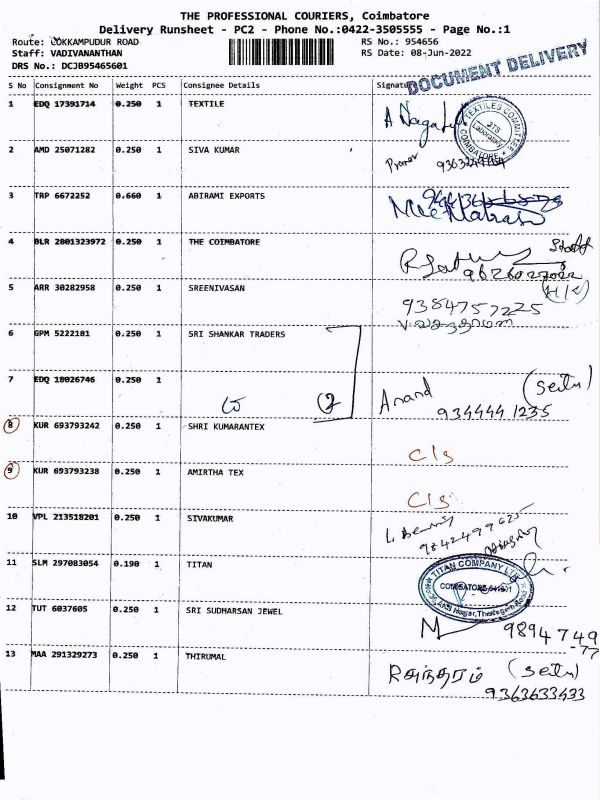 THE PROFESSIONAL COURIERS, Coimbatore
Delivery Runsheet - PC2 - Phone No.:0422-3505555 - Page No.:1
Route: LOKKAMPUDUR ROAD
RS No.: 954656
Staff: VADIVANANTHAN
RS Date: 08-Jun-2022
DRS No.: DCJB95465601
DOCUMENT DELIVERY
S No Consignment No Weight PCS Consignee Details Signature
1 EDQ 17391714 0.250 1 TEXTILE
A Naga
TEXTILES COMMITTEE
Laboratory
COIMBATORE
2 AMD 25071282 0.250 1 SIVA KUMAR
3 TRP 6672252 0.660 1 ABIRAMI EXPORTS
4 BLR 2801323972 0.250 1 THE COIMBATORE
9626027022
5 ARR 30282958 0.250 1 SREENIVASAN
(H/W)
9384757225
6 GPM 5222181 0.250 1 SRI SHANKAR TRADERS
7 EDQ 18026746 0.250 1
2
Anand
9344441235
8 KUR 693793242 0.250 1 SHRI KUMARANTEX
C/s
9 KUR 693793238 0.250 1 AMIRTHA TEX
C/s
10 VPL 213518201 0.250 1 SIVAKUMAR
9842499625
11 SLM 297083054 0.190 1 TITAN
TITAN COMPANY LTD
COIMBATORE-641
12 TUT 6037605 0.250 1 SRI SUDHARSAN JEWEL
9894749
-77
13 MAA 291329273 0.250 1 THIRUMAL
9363633433